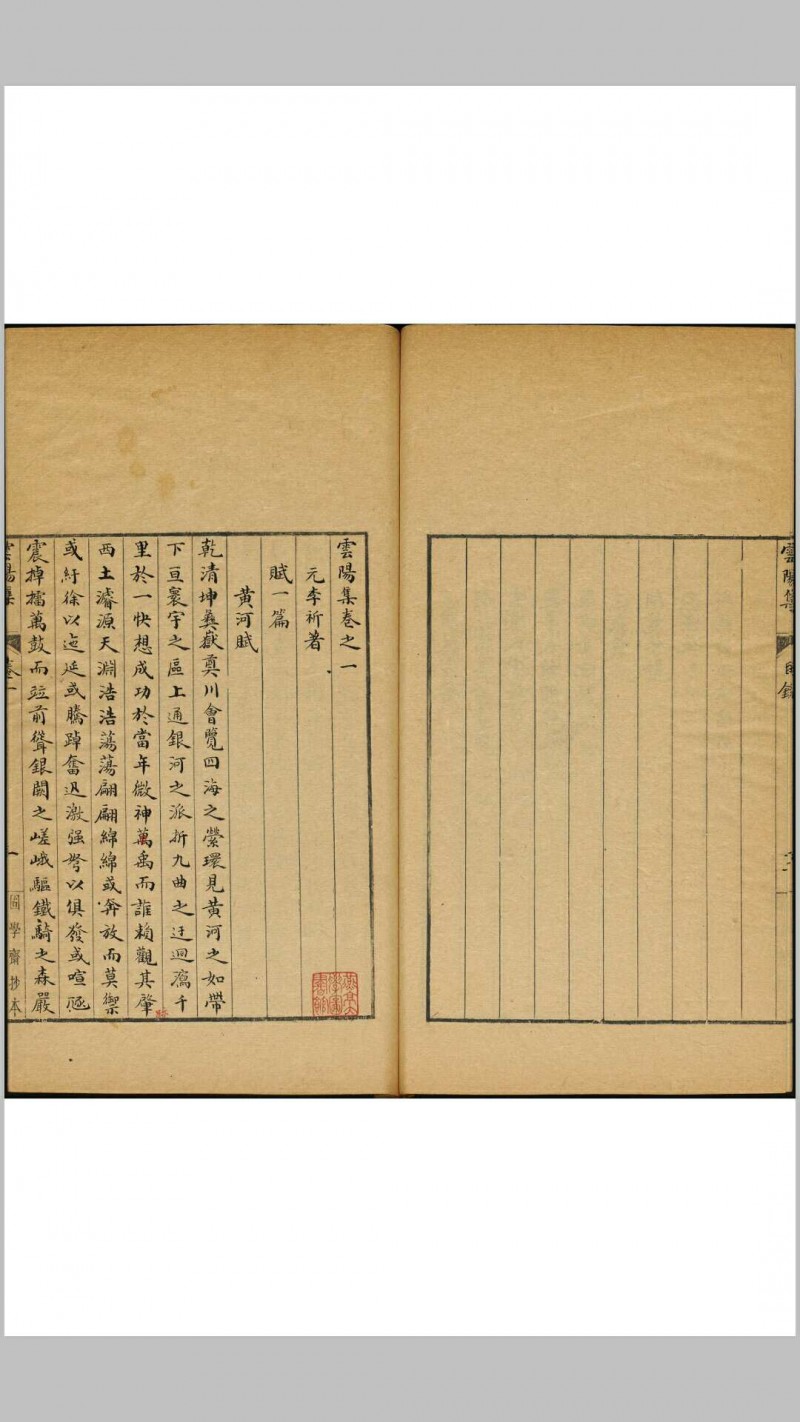 雲陽集
目錄
雲陽集卷之一
元李祈著
賦一篇
黄河賦
乾清坤彝嶽奠川會覽四海之縈環見黄河之如帶
下亘寰宇之區上通銀河之派折九曲之迂迴瀉千
里於一快想成功於當年微神禹而誰賴觀其肇
西土濬源天淵浩浩蕩蕩翩翩綿綿或奔放而莫禦
或紆徐以迤延或騰踔奮迅激强弩以俱發或喧豗
震掉擂萬鼓而竝前聳銀闕之嵯峨驅鐵騎之森嚴
雲陽集
卷一
一
學齋抄本